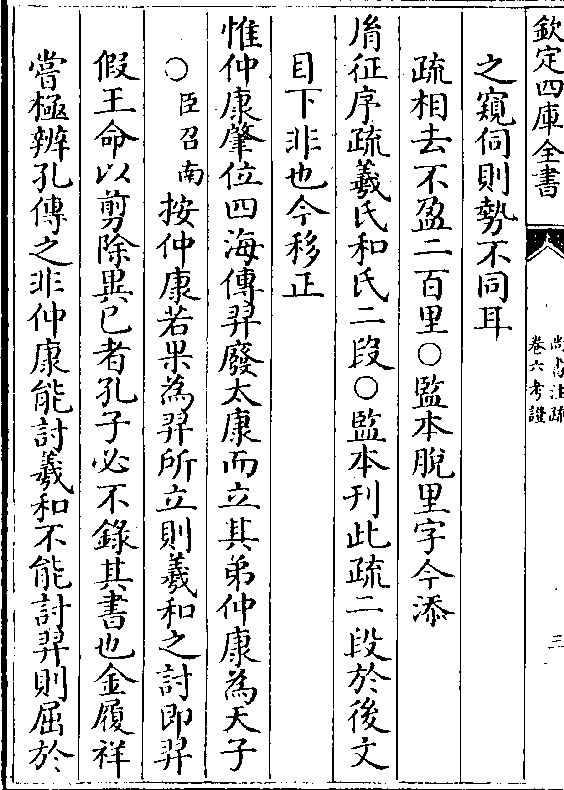 欽定四庫全書
尚書注疏
卷六考證
三
之窺伺則勢不同耳
疏相去不盈二百里○監本脫里字今添
胤征序疏羲氏和氏二段○監本刊此疏二段於後文
目下非也今移正
惟仲康肇位四海傳羿廢太康而立其弟仲康為天子
○臣召南按仲康若果為羿所立則羲和之討即羿
假王命以剪除異已者孔子必不錄其書也金履祥
嘗極辨孔傳之非仲康能討羲和不能討羿則屈於